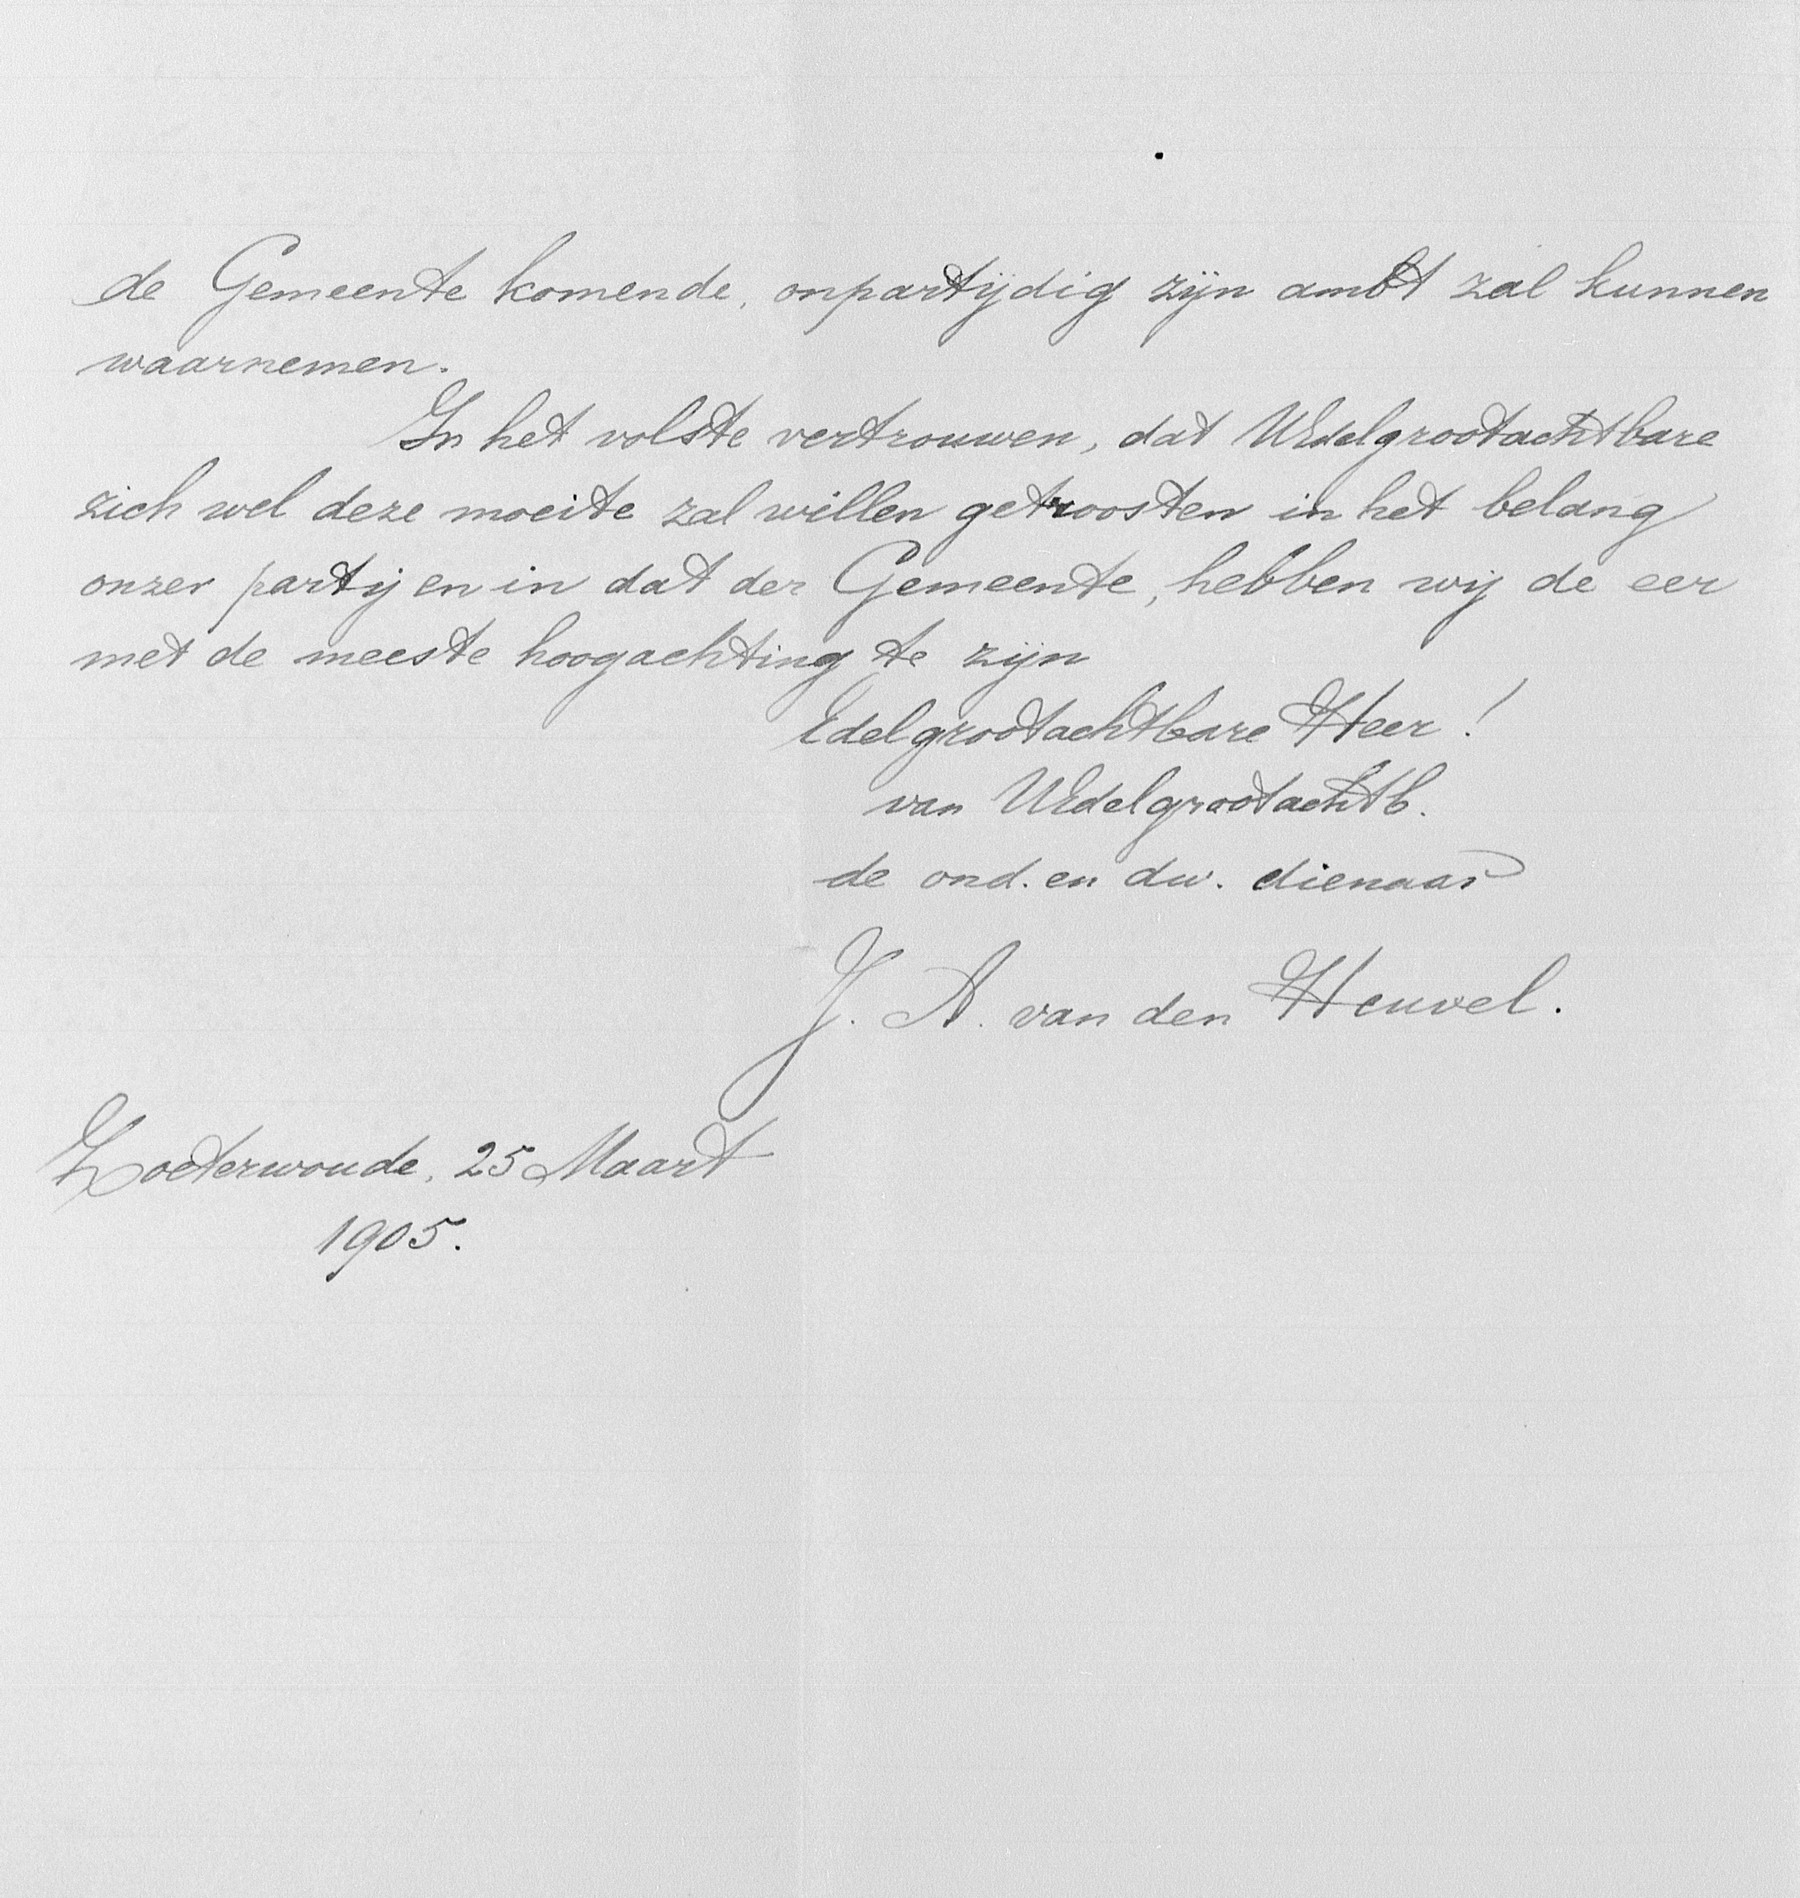 de Gemeente komende, onpartijdig zijn ambt zal kunnen
waarnemen.
In het volste vertrouwen, dat UEdelgrootachtbare
zich wel deze moeite zal willen getroosten in het belang
onzer partij en in dat der Gemeente, hebben wij de eer
met de meeste hoogachting te zijn
Edelgrootachtbare Heer!
van UEdelgrootachtb.
de ond. en dw. dienaar
J. A. van den Heuvel.
Zoeterwoude, 25 Maart
1905.